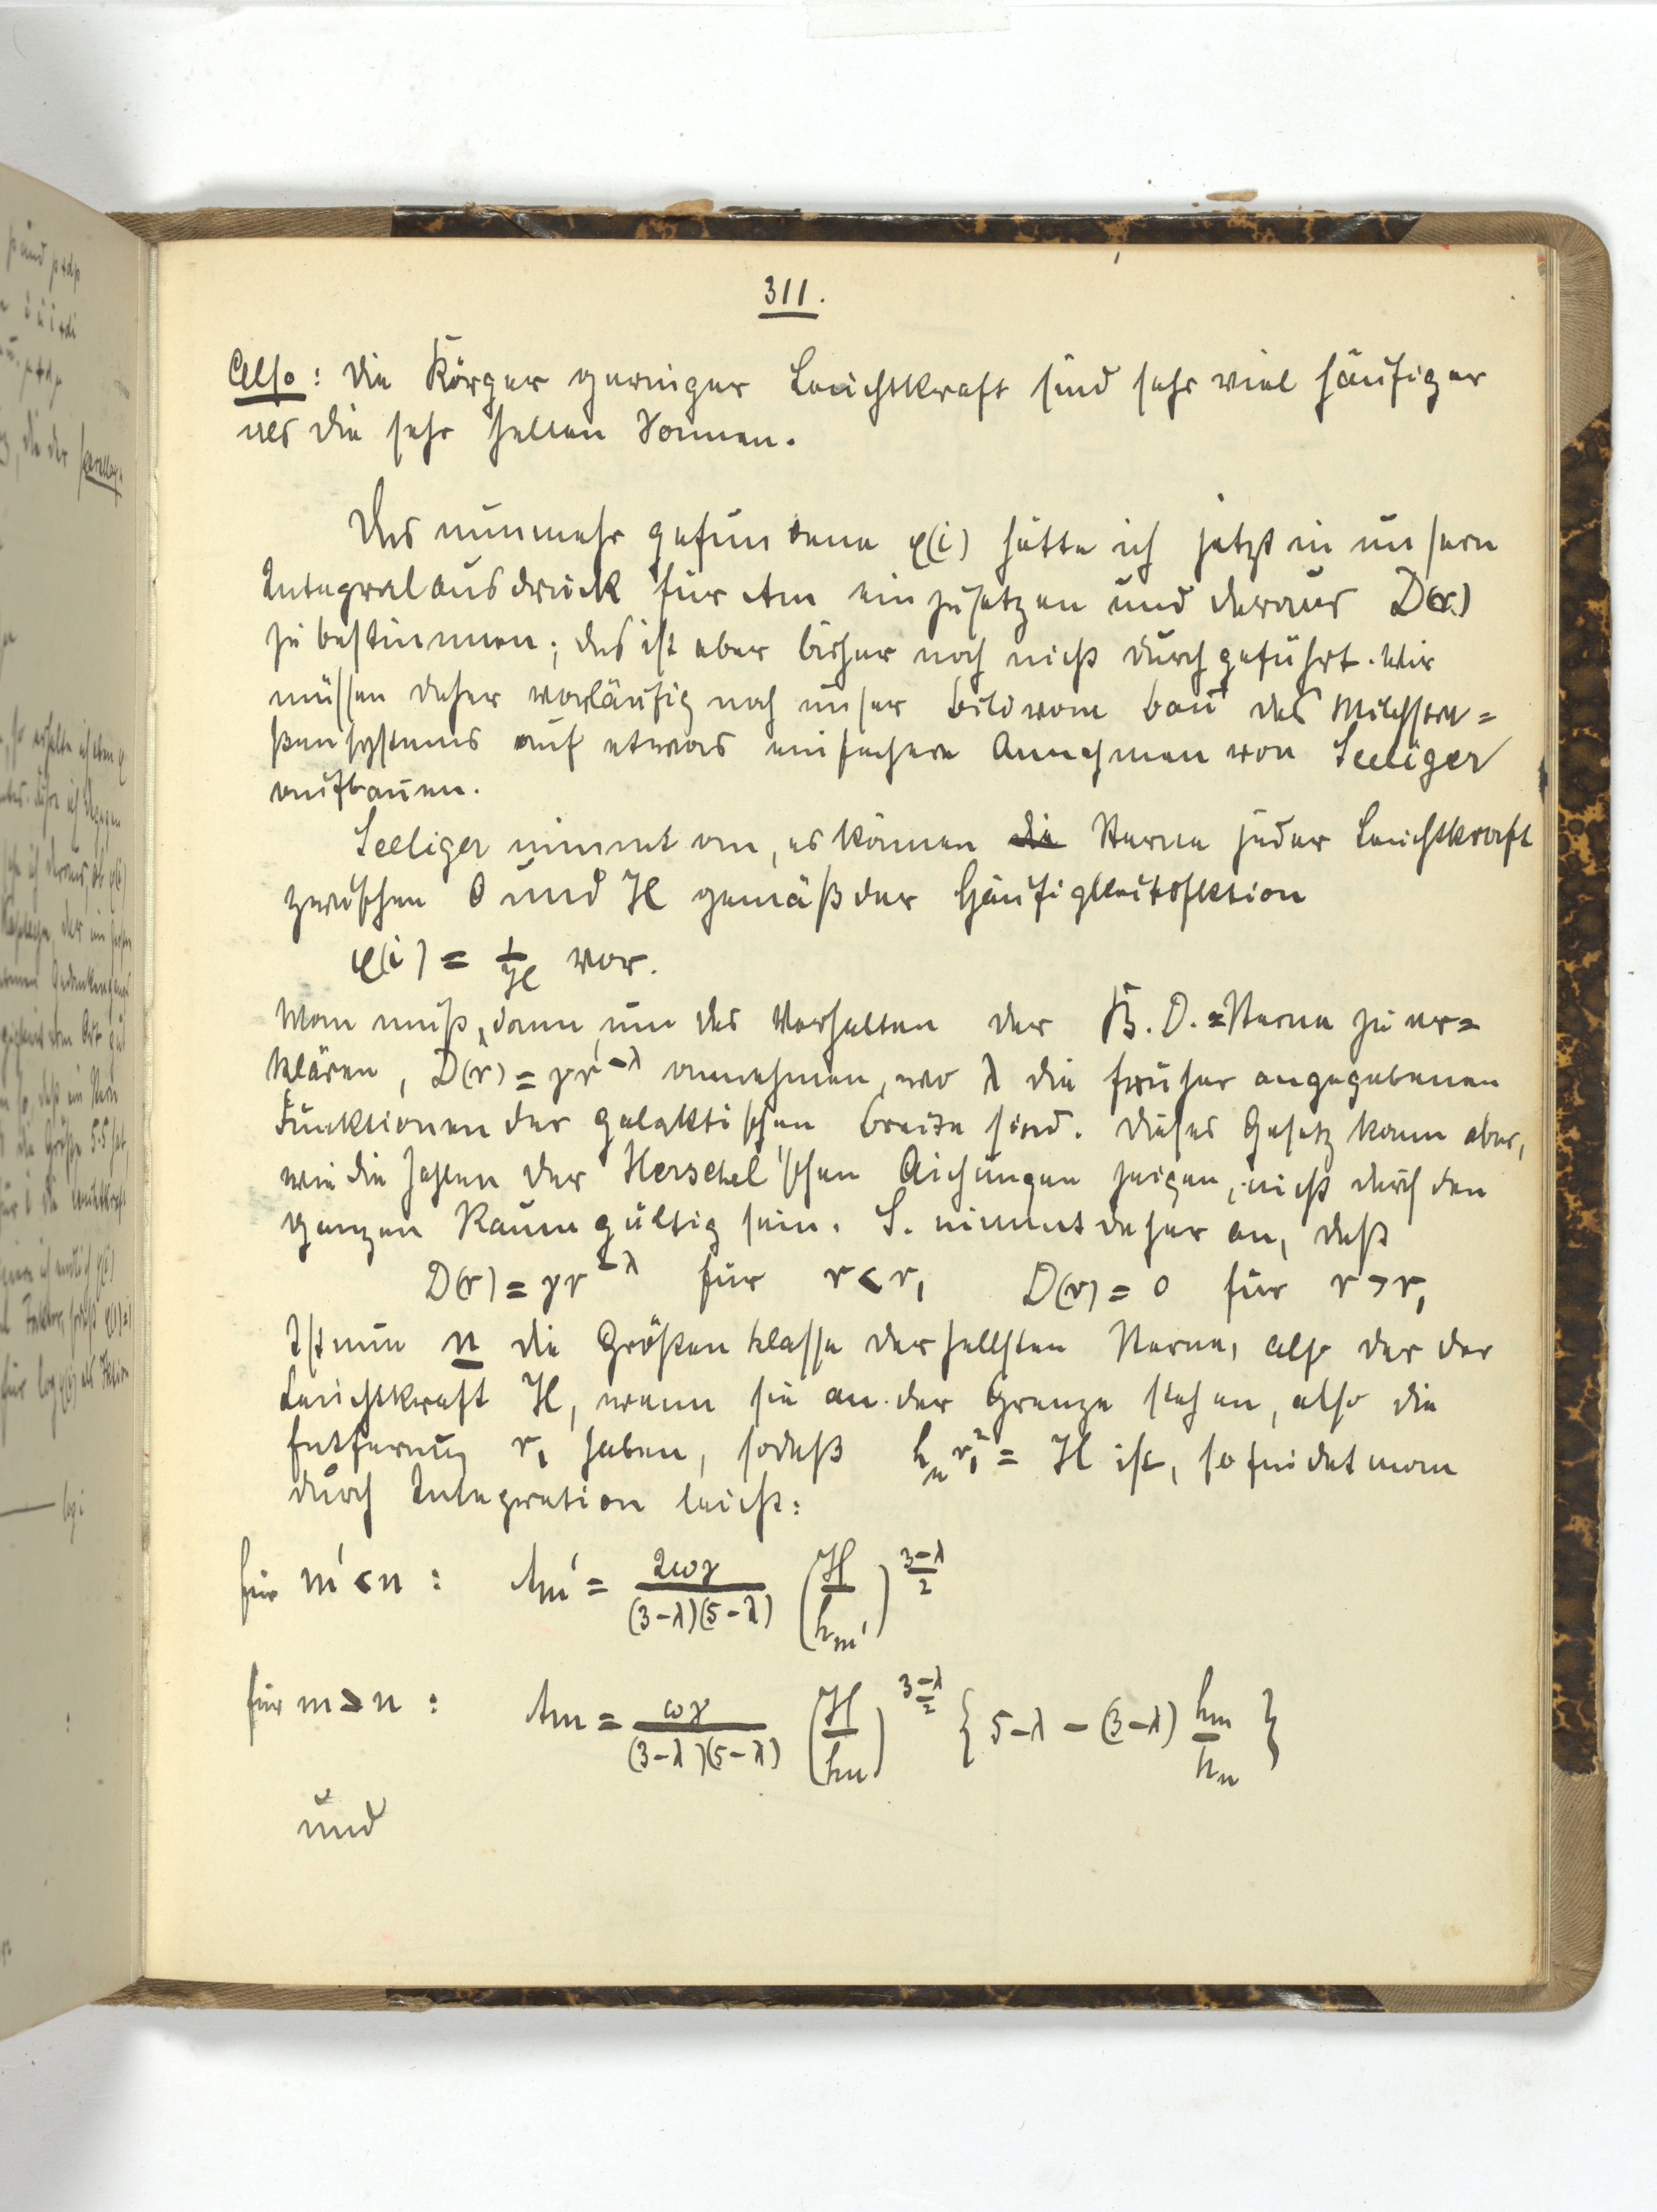 311.
Also: die Körper geringer Leuchtkraft sind sehr viel häufiger
als die sehr hellen Sonnen.
Das nunmehr gefundene φ(i) hätte ich jetzt in unsern
Integralausdruck für Am einzusetzen und daraus D(r)
zu bestimmen; das ist aber bisher noch nicht durchgeführt. Wir
müssen daher vorläufig noch unser Bild vom Bau des Milchstra=
ßensystems auf etwas einfachere Annahmen von Seeliger
aufbauen.
Seeliger nimmt an, es kämen die Sterne jeder Leuchtkraft
zwischen 0 und H gemäß der Häufigkeitsfktion
φ(i) = 1/H vor.
Man muß, dann, um das Verhalten der B.D.=Sterne zu er=
klären, D(r) = γr^-λ annehmen, wo λ die früher angegebenen
Funktionen der galaktischen Breite sind. Dieses Gesetz kann aber,
wie die Zahlen der Herschel'schen Aichungen zeigen, nicht durch den
ganzen Raum gültig sein. S. nimmt daher an, daß
D(r) = γr^-λ für r < r₁ D(r) = 0 für r > r₁
Ist nun n die Größenklasse der hellsten Sterne, also der der
Leuchtkraft H, wenn sie an der Grenze stehen, also die
Entfernung r₁ haben, sodaß hₙr₁² = H ist, so findet man
durch Integration leicht:
für m' < n : Am' = 2ωγ/((3-λ)(5-λ)) (H/hm')^((3-λ)/2)
für m > n : Am = ωγ/((3-λ)(5-λ)) (H/hn)^((3-λ)/2) {5-λ - (3-λ) hm/hn}
und